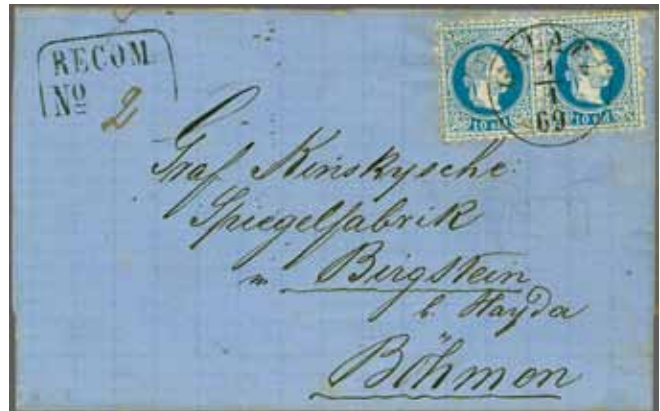 RECOM
Nº 2
10 10
1
1
69
Graf Kinskysche
Spiegelfabrik
in Birgstein
b. Hayda
Böhmen